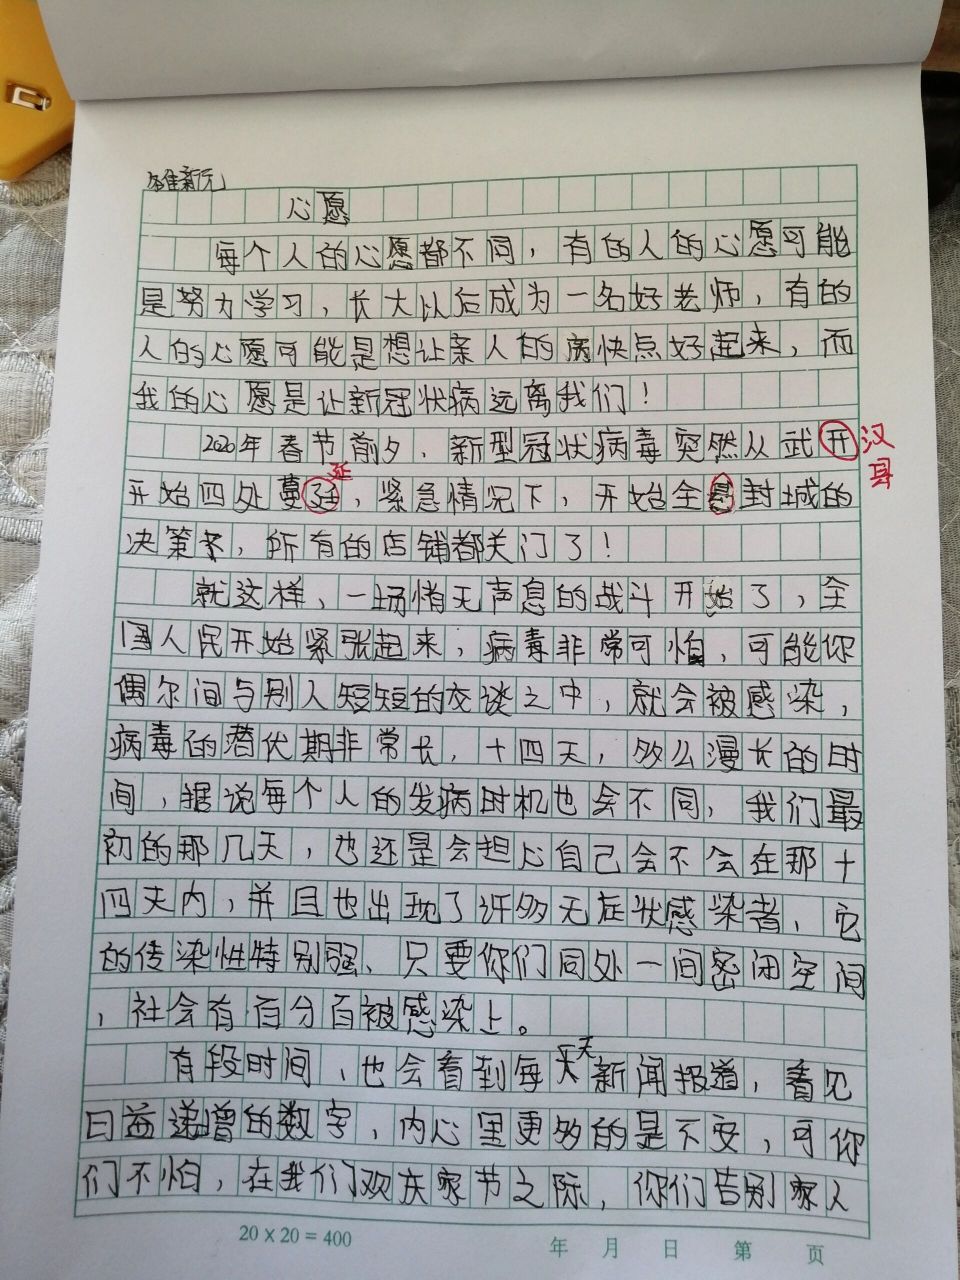 新元
心愿
每个人的心愿都不同，有的人的心愿可能
是努力学习，长大以后成为一名好老师，有的
人的心愿可能是想让亲人的病快点好起来，而
我的心愿是让新冠状病远离我们！
2020年春节前夕，新型冠状病毒突然从武开汉
县
延
开始四处蔓廷，紧急情况下，开始全县封城的
决策，所有的店铺都关门了！
就这样，一场悄无声息的战斗开始了，全
国人民开始紧张起来，病毒非常可怕，可能你
偶尔间与别人短短的交谈之中，就会被感染，
病毒的潜伏期非常长，十四天，多么漫长的时
间，据说每个人的发病时机也会不同，我们最
初的那几天，也还是会担心自己会不会在那十
四天内，并且也出现了许多无症状感染者，它
的传染性特别强、只要你们同处一间密闭空间
，社会有百分百被感染上。
有段时间，也会看到每天天新闻报道，看见
日益递增的数字，内心里更多的是不安，可你
们不怕，在我们欢庆家节之际，你们告别家人
20×20=400
年 月 日 第 页